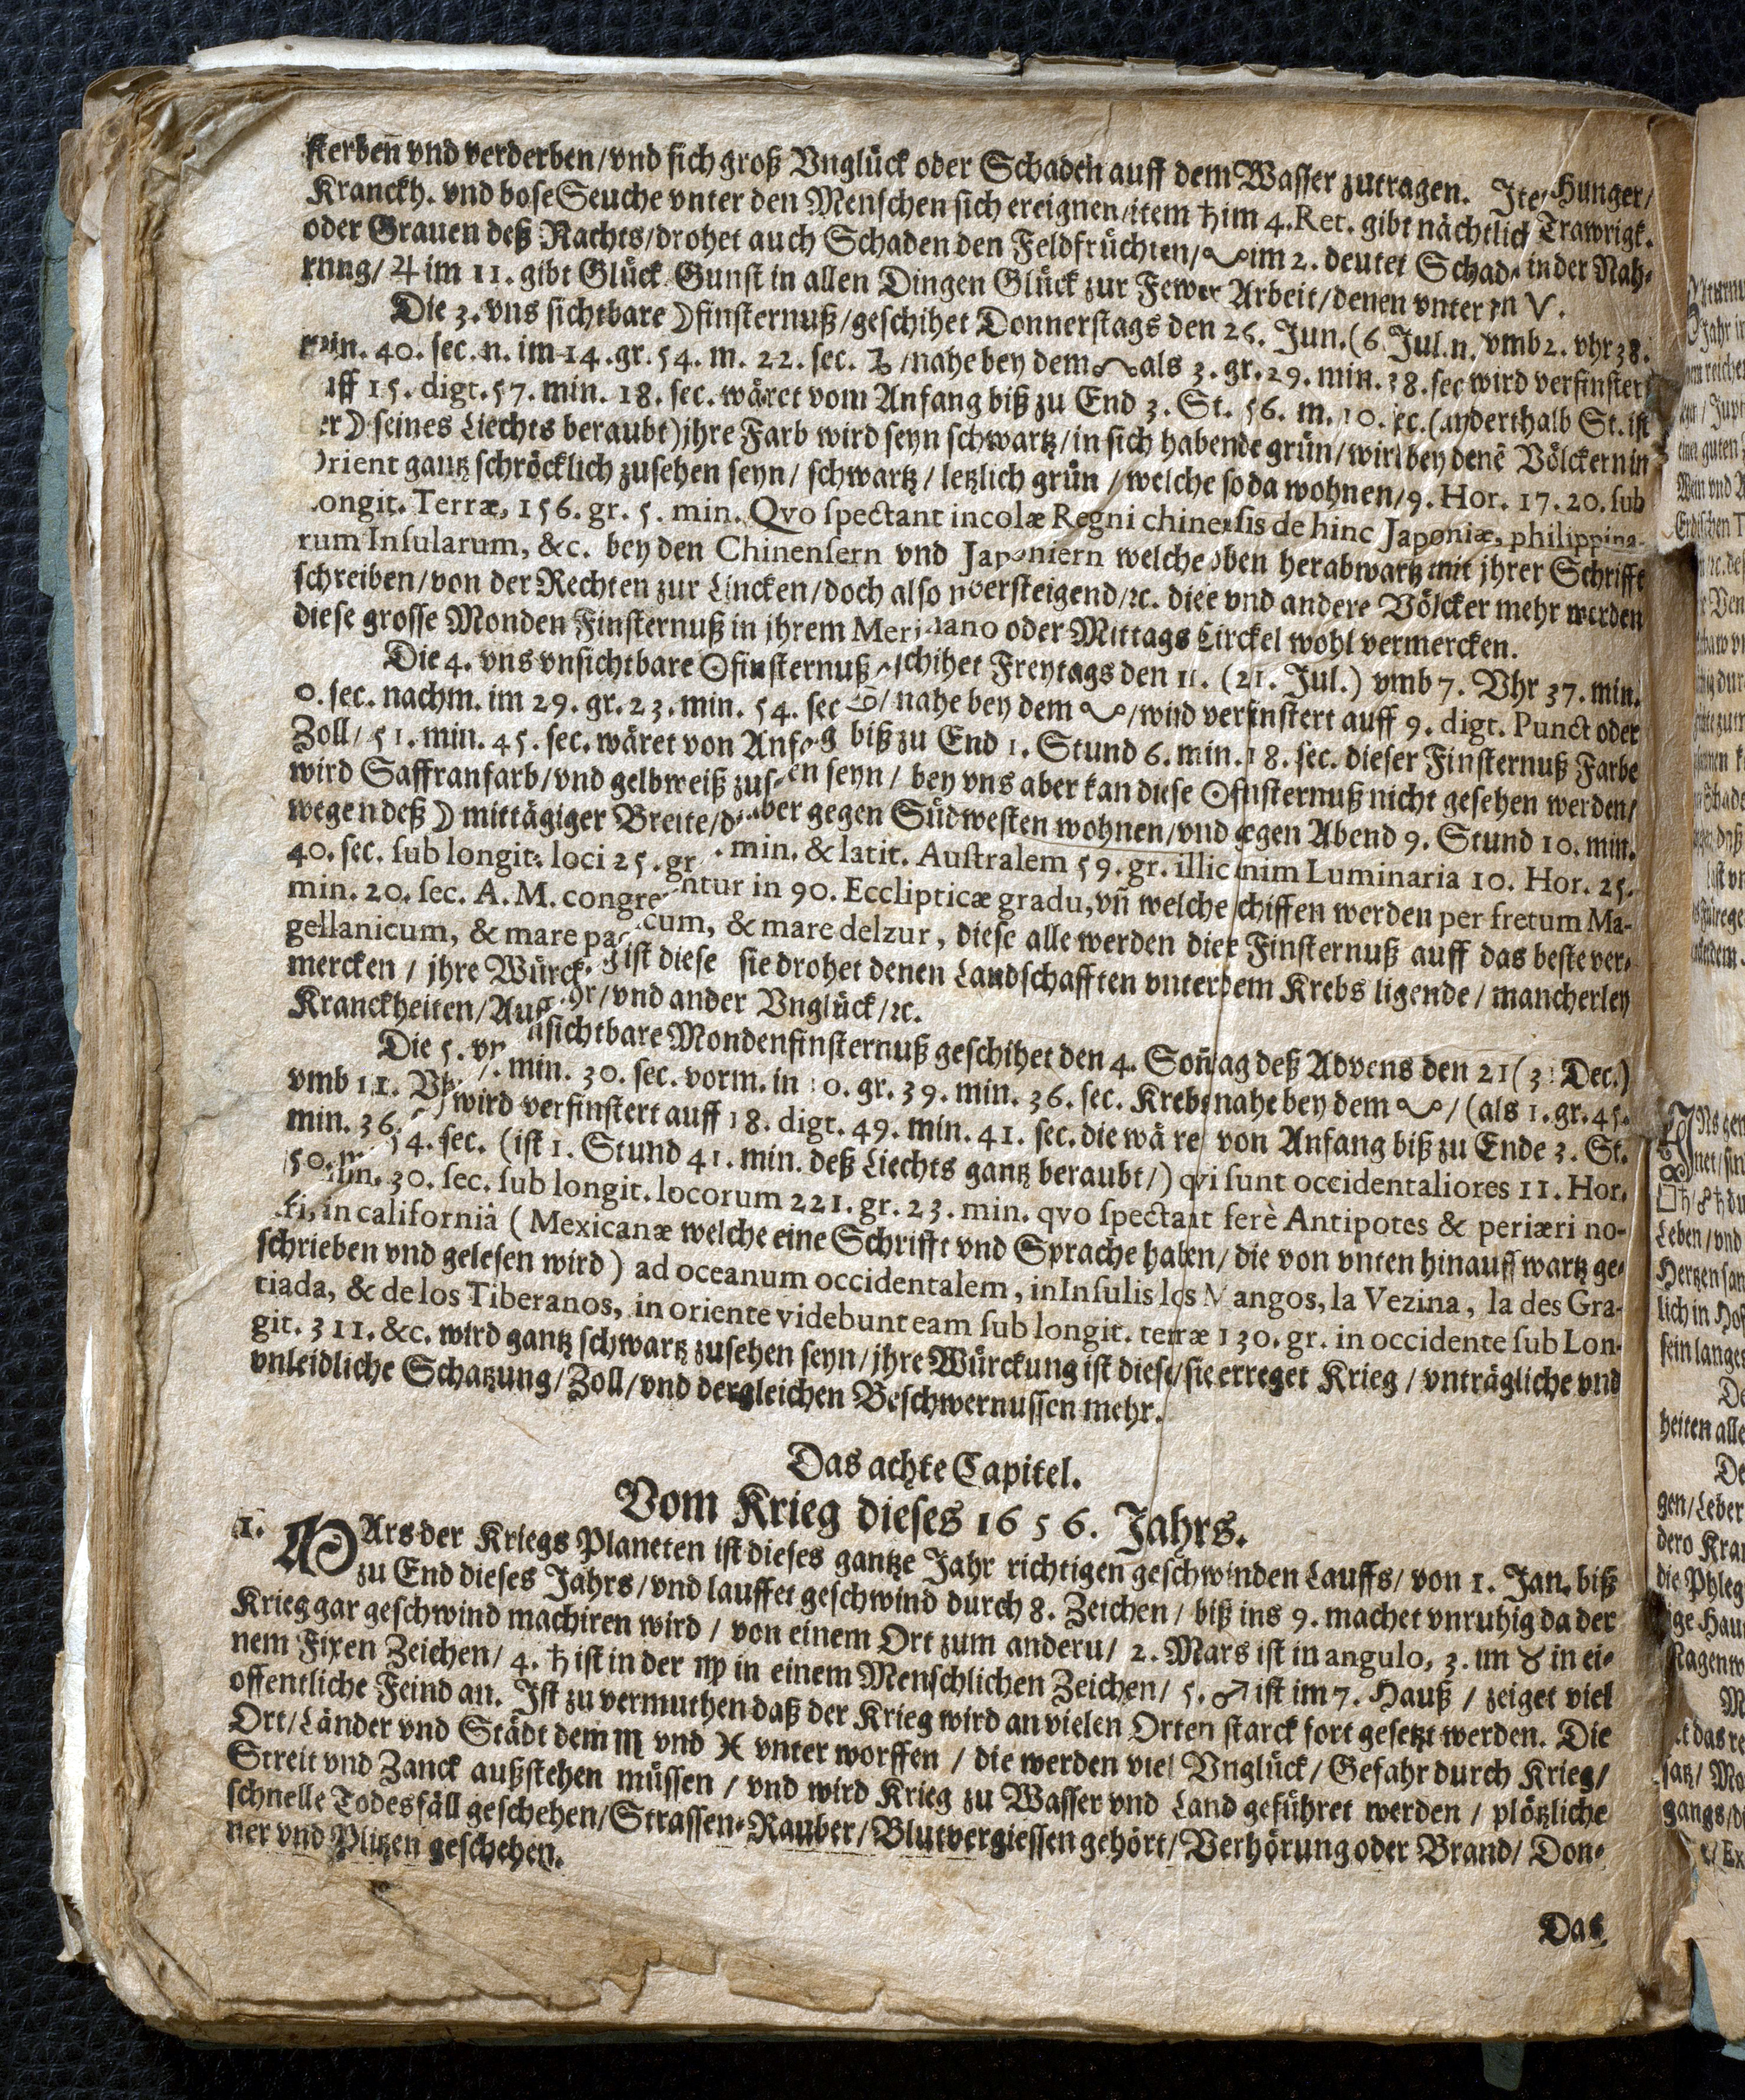 sterben̄ vnd verderben/vnd sich groß Vnglück oder Schaden auff dem Wasser zutragen. Ite/ Hunger/
Kranckh. vnd bose Seuche vnter den Menschen sich ereignen/item ♄ im 4. Ret. gibt nächtlich Trawrigk.
oder Grauen deß Nachts/drohet auch Schaden den Feldfrüchten/ ☋ im 2. deutet Schad. in der Nah-
rnng/ ♃ im 11. gibt Glück Gunst in allen Dingen Glück zur Fewer Arbeit/denen vnter
Die 3. vns sichtbare ☽finsternuß/geschihet Donnerstags den 26. Jun. (6. Jul. n. vmb 2. vhr 38.
min. 40. sec. n. im 14. gr. 54. m. 22. sec. ♑ /nahe bey dem ☊ als 3. gr. 29. min. 38. sec wird verfinster
auff 15. digt. 57. min. 18. sec. wäret vom Anfang biß zu End 3. St. 56. m. 10. sec. (anderthalb St. ist
er ☽ seines Liechts beraubt) jhre Farb wird seyn schwartz/in sich habende grün/wird bey denē Völckern in
Orient gantz schröcklich zusehen seyn/ schwartz / letzlich grün / welche so da wohnen/ 9. Hor. 17. 20. sub
longit. Terræ, 156. gr. 5. min. Qvo spectant incolæ Regni chinensis de hinc Japoniæ, philippina-
rum Insularum, &c. bey den Chinensern vnd Japoniern welche oben herabwartz mit jhrer Schrifft
schreiben/von der Rechten zur Lincken/doch also versteigend/ꝛc. diee vnd andere Völcker mehr werden
diese grosse Monden Finsternuß in jhrem Meridiano oder Mittags Circkel wohl vermercken.
Die 4. vns vnsichtbare ☉finsternuß schihet Freytags den 11. (21. Jul.) vmb 7. Vhr 37. min.
0. sec. nachm. im 29. gr. 23. min. 54. sec ♋/ nahe bey dem ☋/wird verfinstert auff 9. digt. Punct oder
Zoll/ 51. min. 45. sec. wäret von Anfag biß zu End 1. Stund 6. min. 18. sec. dieser Finsternuß Farbe
wird Saffranfarb/vnd gelbweiß zusen seyn / bey vns aber kan diese ☉finsternuß nicht gesehen werden/
wegen deß ☽ mittägiger Breite/d aber gegen Südwesten wohnen/vnd gegen Abend 9. Stund 10. min.
40. sec. sub longit. loci 25. gr . min. & latit. Australem 59. gr. illic enim Luminaria 10. Hor. 25.
min. 20. sec. A. M. congrentur in 90. Ecclipticæ gradu, vñ welche schiffen werden per fretum Ma-
gellanicum, & mare pacicum, & mare delzur, diese alle werden dier Finsternuß auff das beste ver-
mercken / jhre Würck. g ist diese sie drohet denen Landschafften vnter dem Krebs ligende / mancherley
Kranckheiten/Auffhr/vnd ander Vnglück/ꝛc.
Die 5. vn nsichtbare Mondenfinsternuß geschihet den 4. Soñtag deß Advens den 21 (31 Dec.)
vmb 11. Vhr 7. min. 30. sec. vorm. in 10. gr. 39. min. 36. sec. Krebs nahe bey dem ☋ / (als 1. gr. 45.
min. 36. wird verfinstert auff 18. digt. 49. min. 41. sec. die wäret von Anfang biß zu Ende 3. St.
50. m 54. sec. (ist 1. Stund 41. min. deß Liechts gantz beraubt/) qvi sunt occidentaliores 11. Hor.
min. 30. sec. sub longit. locorum 221. gr. 23. min. qvo spectant ferè Antipotes & periæri no-
stri, in californiâ ( Mexicanæ welche eine Schrifft vnd Sprache haben/ die von vnten hinauff wartz ge-
schrieben vnd gelesen wird) ad oceanum occidentalem, in Insulis los Mangos, la Vezina, la des Gra-
tiada, & de los Tiberanos, in oriente videbunt eam sub longit. terræ 130. gr. in occidente sub Lon-
git. 311. &c. wird gantz schwartz zusehen seyn/jhre Würckung ist diese/sie erreget Krieg / vnträgliche vnd
vnleidliche Schatzung/Zoll/vnd dergleichen Beschwernussen mehr.
Das achte Capitel.
Vom Krieg dieses 1656. Jahrs.
1. MArs der Kriegs Planeten ist dieses gantze Jahr richtigen geschwinden Lauffs/ von 1. Jan. biß
zu End dieses Jahrs/vnd lauffet geschwind durch 8. Zeichen / biß ins 9. machet vnruhig da der
Krieg gar geschwind machiren wird / von einem Ort zum anderu/ 2. Mars ist in angulo, 3. im ♉ in ei-
nem Fixen Zeichen/ 4. ♄ ist in der ♍ in einem Menschlichen Zeichen/ 5. ♂ ist im 7. Hauß / zeiget viel
offentliche Feind an. Ist zu vermuthen daß der Krieg wird an vielen Orten starck fort gesetzt werden. Die
Ort/Länder vnd Städt dem ♏ vnd ♓ vnter worffen / die werden viel Vnglück/ Gefahr durch Krieg/
Streit vnd Zanck außstehen müssen / vnd wird Krieg zu Wasser vnd Land geführet werden / plötzliche
schnelle Todesfäll geschehen/Strassen-Rauber/Blutvergiessen gehört/Verhörung oder Brand/ Don-
ner vnd Plitzen geschehen.
Das